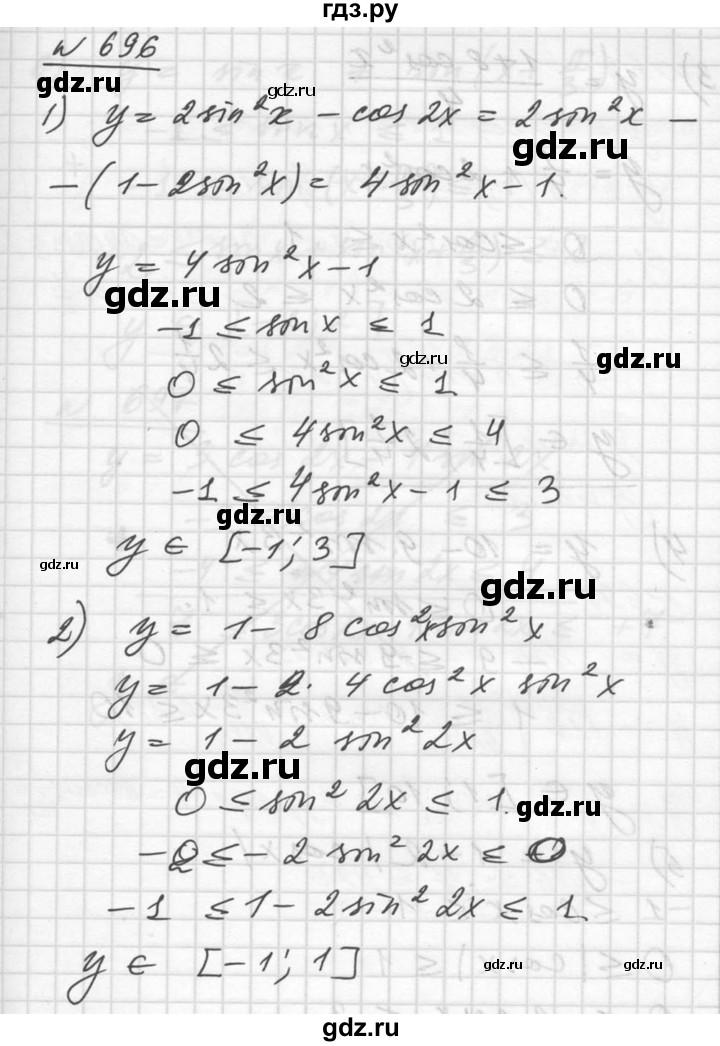 гдз.ру
N 696
gdz.ru
1) y = 2sin²x - cos 2x = 2sin²x -
gdz.ru
- (1 - 2sin²x) = 4sin²x - 1.
y = 4sin²x - 1
gdz.ru
-1 ≤ sin x ≤ 1
gdz.ru
gdz.ru
0 ≤ sin²x ≤ 1
0 ≤ 4sin²x ≤ 4
-1 ≤ 4sin²x - 1 ≤ 3
gdz.ru
y ∈ [-1; 3]
gdz.ru
gdz.ru
2) y = 1 - 8cos²x sin²x
y = 1 - 2· 4cos²x sin²x
y = 1 - 2 sin² 2x
gdz.ru
0 ≤ sin² 2x ≤ 1.
gdz.ru
-2 ≤ -2 sin² 2x ≤ 0
-1 ≤ 1 - 2sin² 2x ≤ 1
y ∈ [-1; 1]
gdz.ru
gdz.ru
gdz.ru